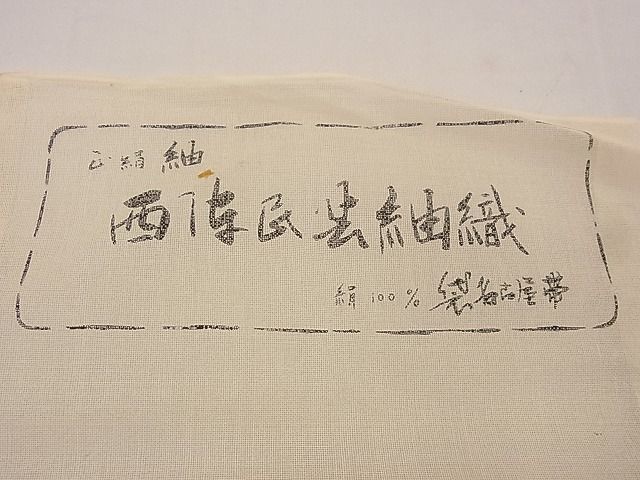 正絹 紬
西陣民芸紬織
絹 100% 袋名古屋帯